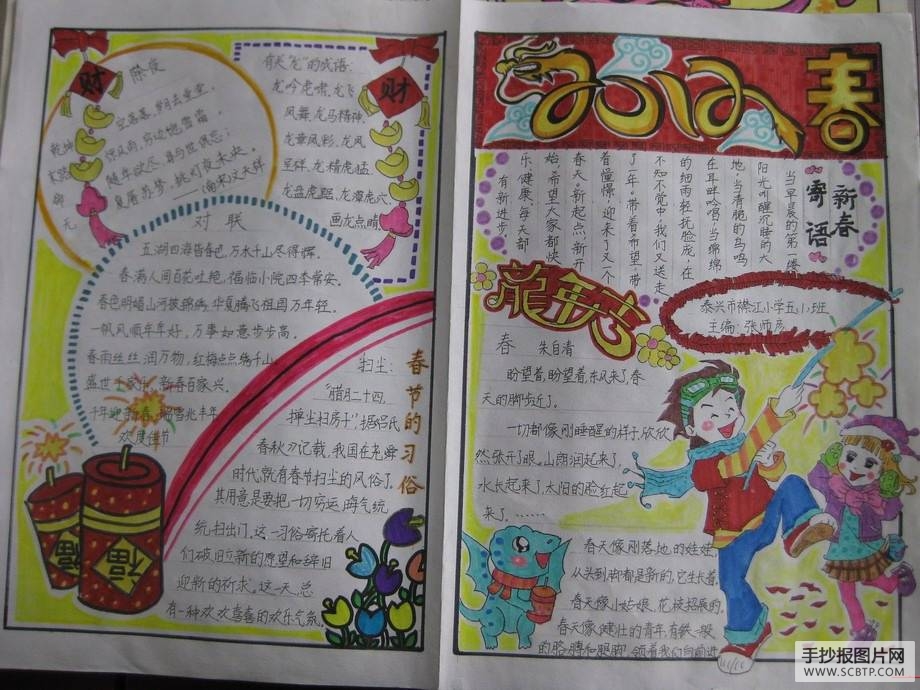 财
除夜
乾坤空落落，岁月去堂堂；
末路惊风雨，穷边饱雪霜。
命随年欲尽，身与世俱忘；
无复屠苏梦，挑灯夜未央。
——(南宋)文天祥
有关"龙"的成语：
龙吟虎啸，龙飞
凤舞，龙马精神，
龙章凤彩，龙凤
呈祥，龙精虎猛，
龙盘虎踞，龙潭虎穴，
画龙点睛，
财
对联
五湖四海皆春色，万水千山尽得辉。
春满人间百花吐艳，福临小院四季常安。
春色明媚山河披锦绣，华夏腾飞祖国万年轻。
一帆风顺年年好，万事如意步步高。
春雨丝丝润万物，红梅点点绣千山。
盛世千家乐，新春百家兴。
千年迎新春，瑞雪兆丰年
欢度佳节
春节的习俗
扫尘：
"腊月二十四，
掸尘扫房子"，据《吕氏
春秋》记载，我国在尧舜
时代就有春节扫尘的风俗了，
其用意是要把一切穷运、晦气统
统扫出门。这一习俗寄托着人
们破旧立新的愿望和辞旧
迎新的祈求。这一天，总
有一种欢欢喜喜的欢乐气氛。
福
福
2012
春
新春
寄语
当早晨的第一缕
阳光唤醒沉睡的大
地，当清脆的鸟鸣
在耳畔吟唱，当绵绵
的细雨轻抚脸庞，在
不知不觉中，我们又送走
了一年。带着希望，带
着憧憬，迎来了又一个
春天。新起点，新开
始，希望大家都快
乐、健康，每天都
有新进步。
龍年大吉
泰兴市襟江小学五(1)班
主编：张师彦
春 朱自清
盼望着，盼望着，东风来了，春
天的脚步近了。
一切都像刚睡醒的样子，欣欣
然张开了眼。山朗润起来了，
水长起来了，太阳的脸红起
来了。……
春天像刚落地的娃娃，
从头到脚都是新的，它生长着。
春天像小姑娘，花枝招展的。
春天像健壮的青年，有铁一般
的胳膊和腿脚，领着我们向前进
手抄报图片网
WWW.SCBTP.COM